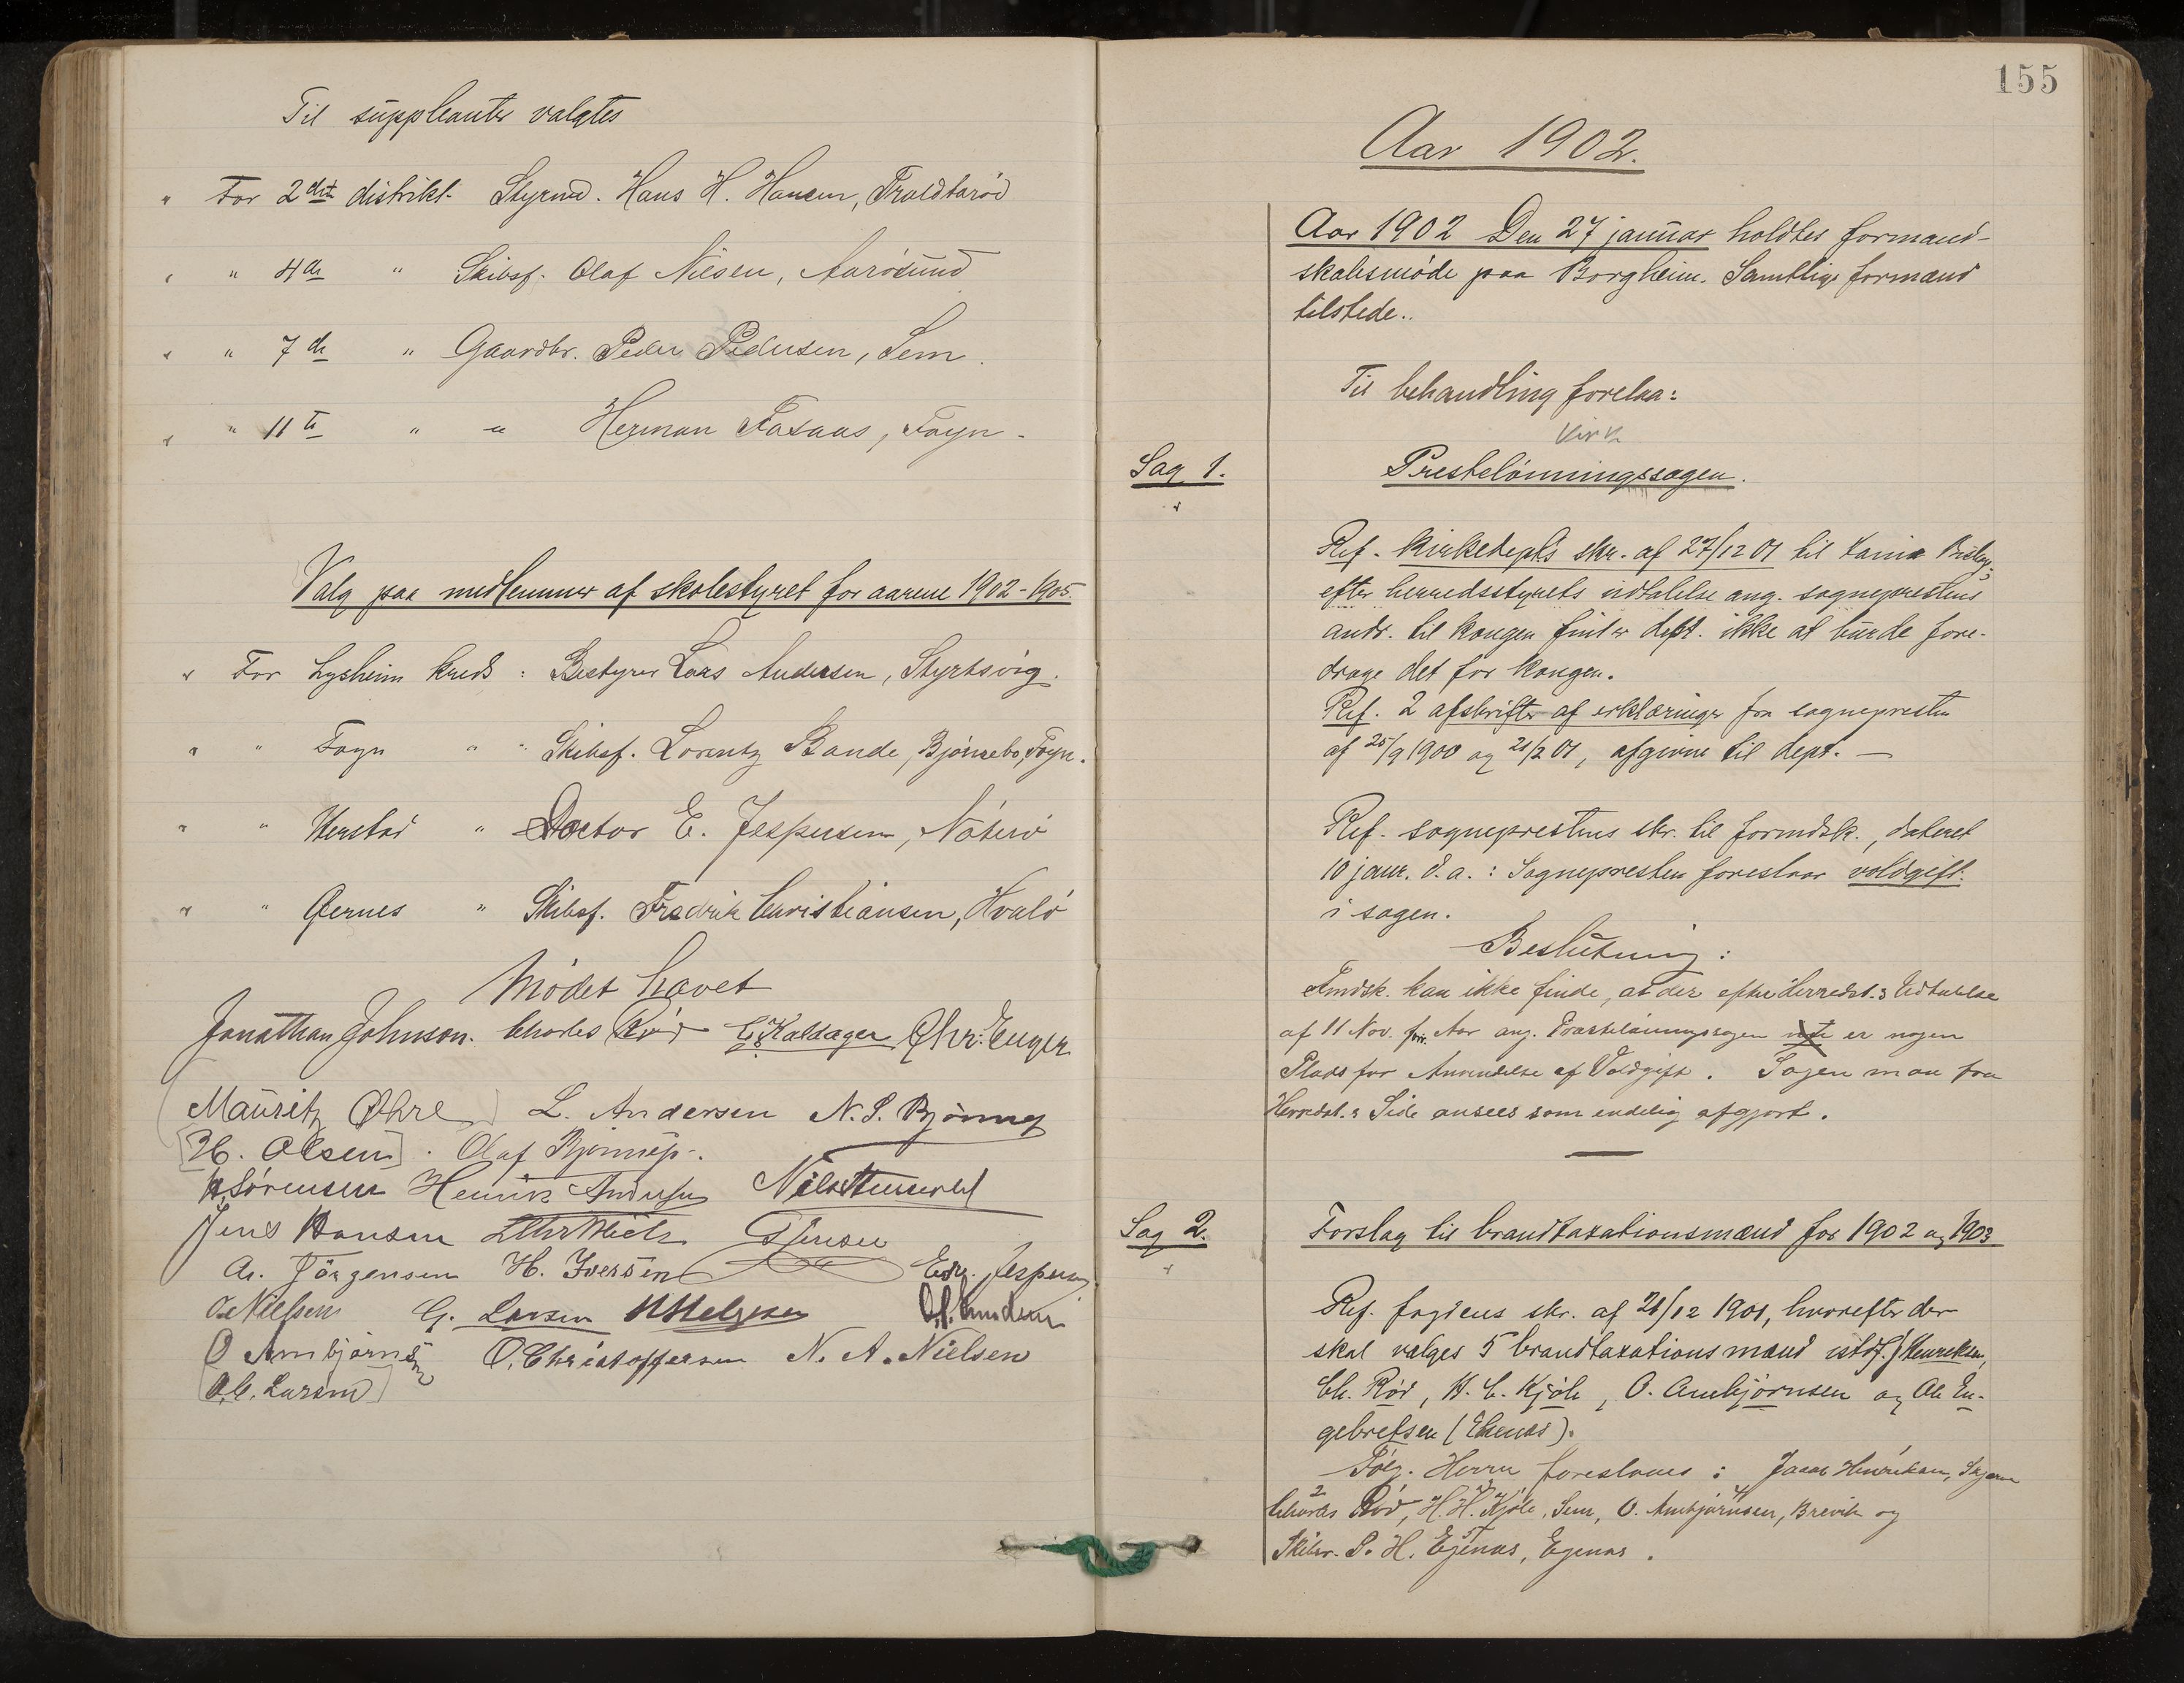 Til suppleanter valgtes
" For 2det distrikt. Styrmd. Hans H. Hansen, Traldtarød
" " 4de " Skibsf. Olaf Nilsen, Aarøsund
" " 7de " Gaardbr. Peder Pedersen, Sem.
" " 11te " " Herman Faxaas, Føyn.
Valg paa medlemmer af skolestyret for aarene 1902-1905.
" For Lysheim kreds: Bestyrer Lars Andersen, Styrtsvig.
" " Føyn " " Skibsf. Lorentz Bande, Bjørnebo, Føyn.
" " Herstad " Doctor E. Jespersen, Nøterø
" " Gernes " Skibsf. Fredrik Christiansen, Hvalø
Mødet hævet
Jonathan Johnson. Charles Rød E. Kaldager Chr. Enger
Mauritz Øhre L. Andersen N. S. Bjønnes
[H. Olsen]. Olaf Bjønnes.
H. Sørensen Henrik Andersen
Jens Hansen Jensen
A. Jörgensen H. Iversen Edv. Jespersen
O. Nielsen G. Larsen H. Helgesen
O Ambjørnsen O. Christoffersen N. A. Nielsen
[O. C. Larsen]
155
Aar 1902.
Aar 1902 Den 27 januar holdtes formand-
skabsmøde paa Borgheim. Samtlige formænd
tilstede..
Til behandling forelaa:
Kirk
Sag 1. Prestelønningssagen.
Ref. Kirkedepts skr. af 27/12 01 til
efter herredsstyrets udtalelse ang. sogneprestens
andr. til kongen finder dept. ikke at burde fore-
drage det for kongen.
Ref. 2 afskrifter af erklæringer fra sognepresten
af 25/9 1900 og 21/2 01, afgivne til dept. —
Ref. sogneprestens skr. til formdsk., dateret
10 janr. d.a.: Sognepresten foreslaar voldgift
i sagen.
Beslutning:
Fmdsk. kan ikke finde, at der efter Herredst.s Udtalelse
af 11 Nov. f. Aar ang. Præstelønningssagen er nogen
Plads for Anvendelse af Voldgift. Sagen maa fra
Herredst.s Side ansees som endelig afgjort.
Sag 2. Forslag til brandtaxationsmænd for 1902 og 1903
Ref. fogdens skr. af 21/12 1901, hvorefter der
skal vælges 5 brandtaxationsmænd istdf. J Henriksen,
Ch. Rød, H. C. Kjøle, O. Ambjørnsen og Ole En-
gebretsen (Ekenæs).
Følg. Herrer foreslaaes: Jacob Henriksen,
2 Charles Rød, H. H. Kjøle, Sem, O. Ambjørnsen, Brevik og
Skibsr. P. H. Egenæs, Egenæs.